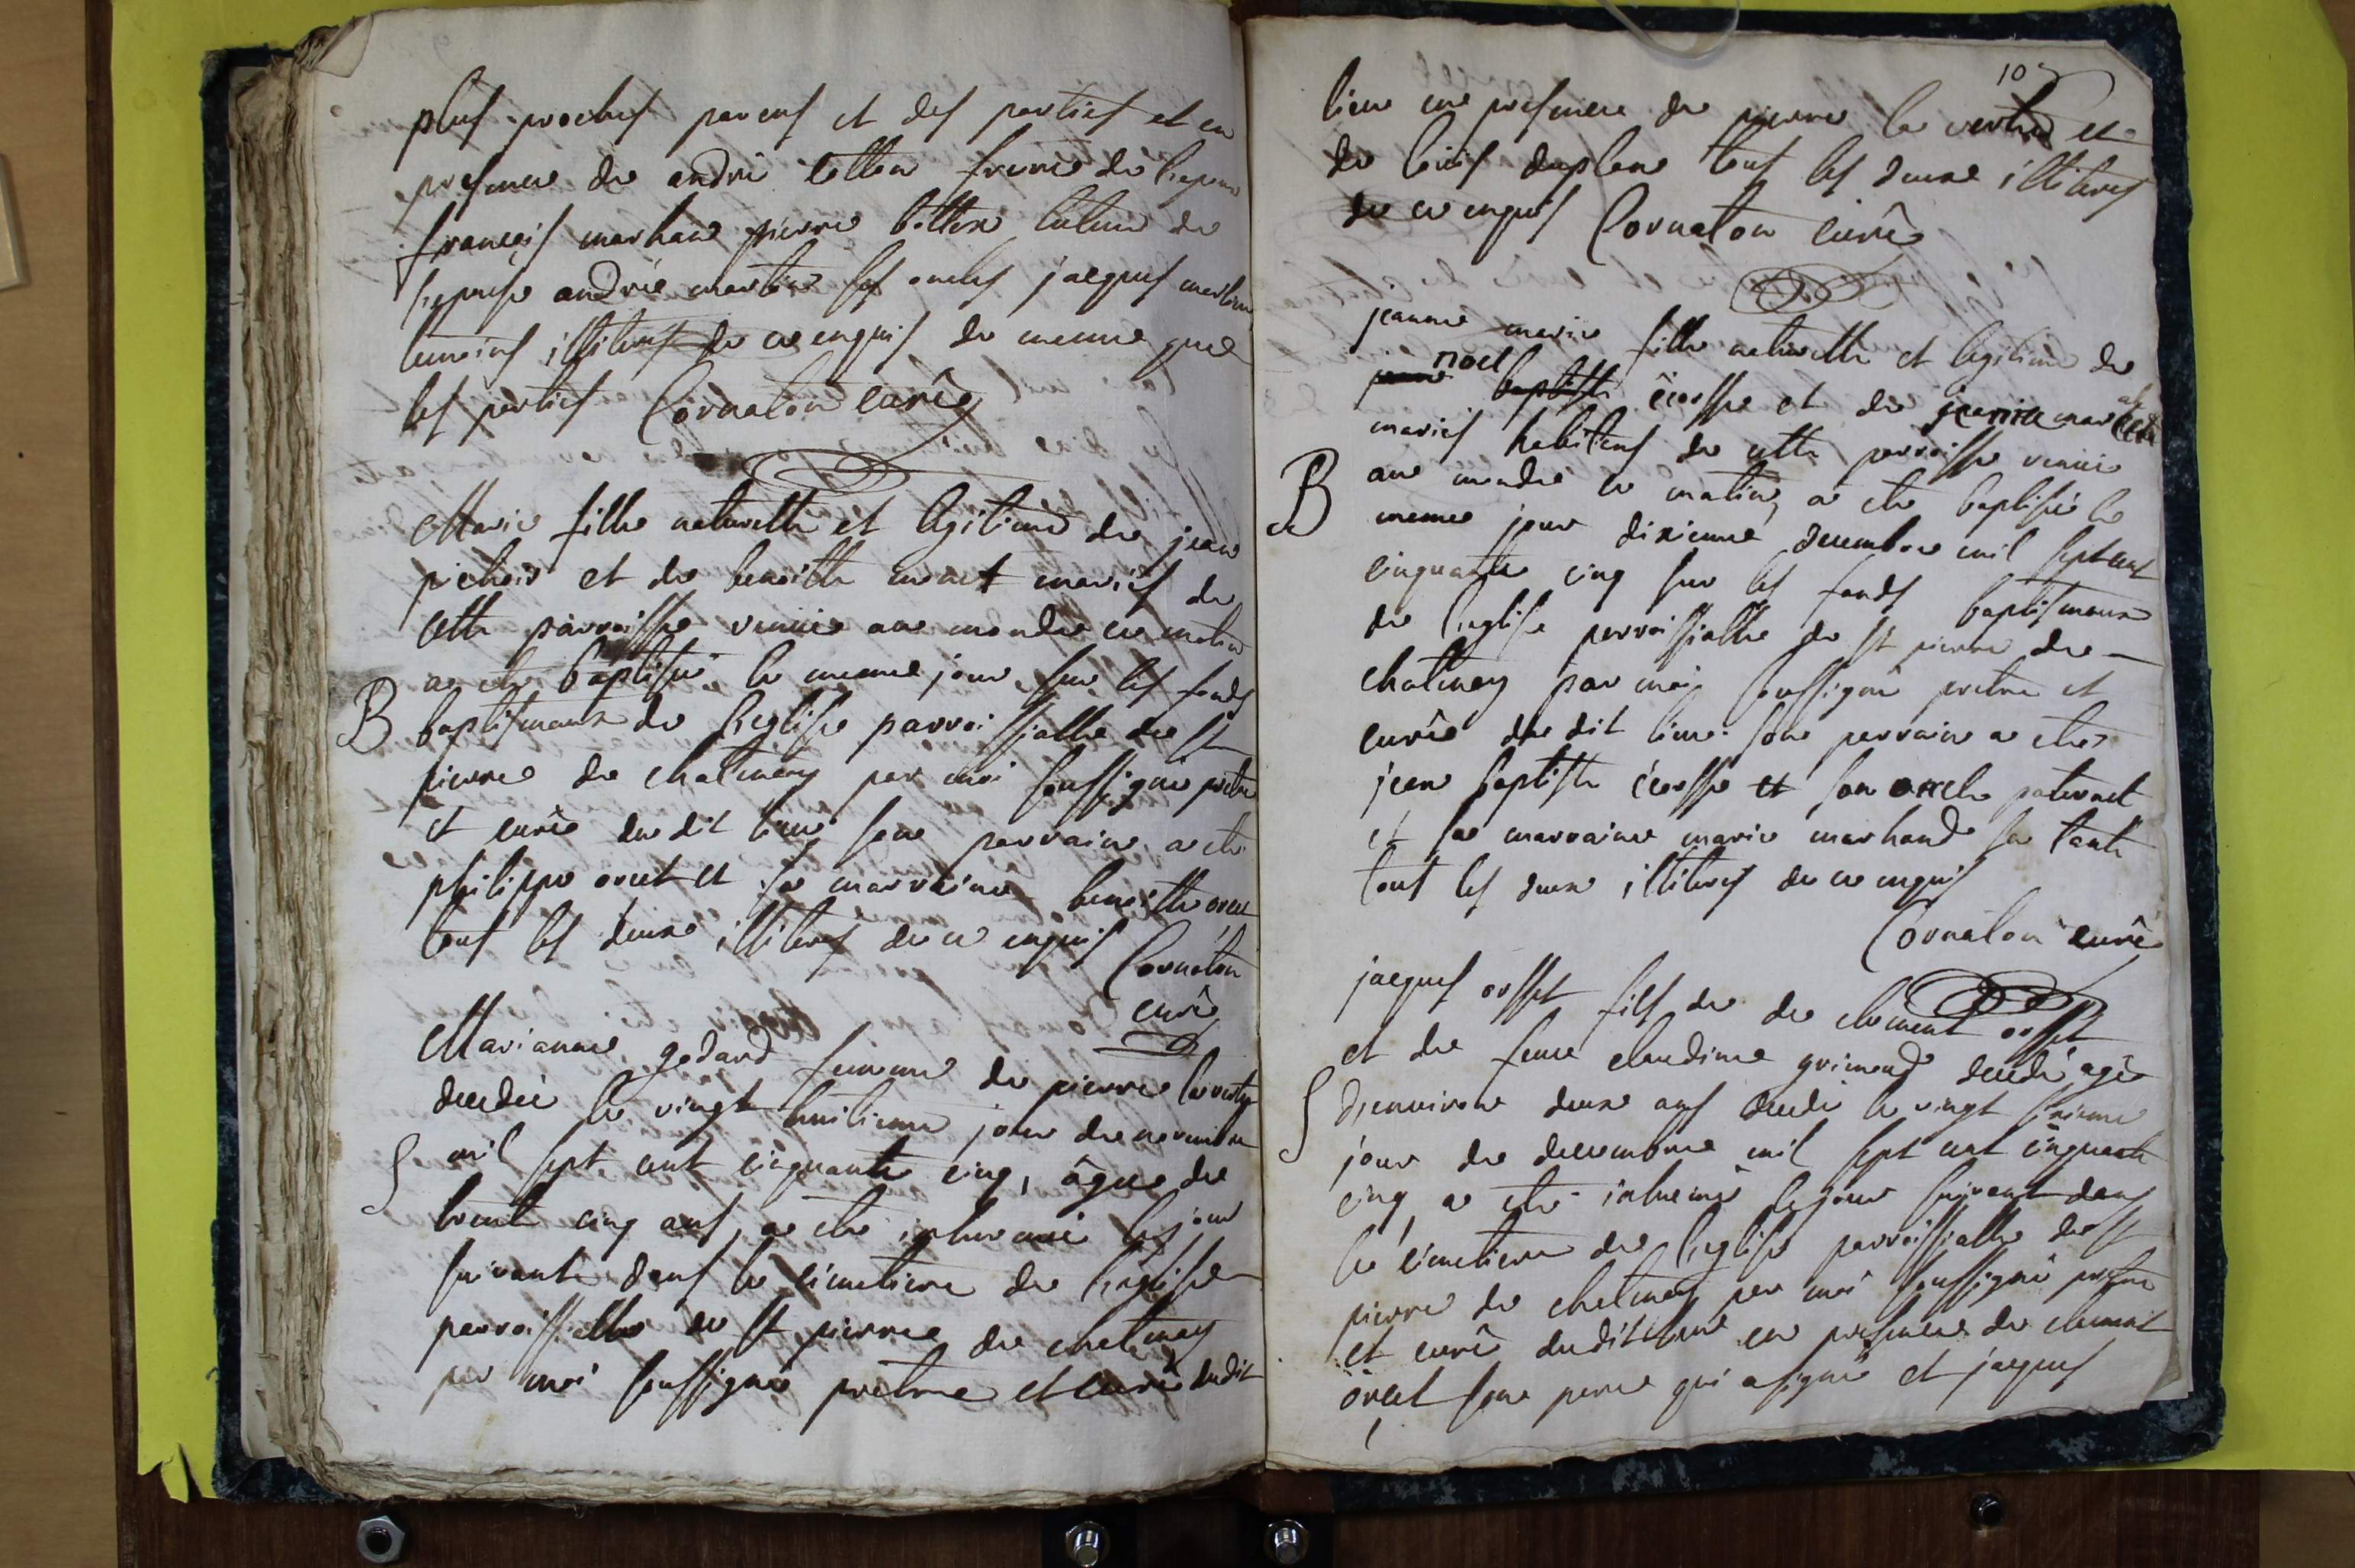 plus proches parens et des parties et en
presence de andré frere de l'epoux
françois marhand pierre tuteur de
l'epouse andré martin ses oncles jacques
temoins illiteres de ce enquis de meme que
les parties Cornaton curé
Marie fille naturelle et legitime de jean
et de benoitte mariés de
cette parroisse venue au monde ce matin
a ete baptisée le meme jour sur les fonds
B baptismaux de l'eglise parroissialle de st
pierre de chatenay par moi soussigné pretre
et curé du dit lieu son parrain a ete
philippe orcet et sa marraine benoitte orcet
tous les deux illiteres de ce enquis
Cornaton
curé
Marianne godard femme de pierre
decedée le vingt huitieme jour de novembre
S mil sept cent cinquante cinq, âgée de
trente cinq ans, a ete inhumée le jour
suivante dans le cimetiere de l'eglise
parroissialle de st pierre de chatenay
par moi soussigné pretre et curé dudit
10
lieu en presence de pierre la et
de louis tous les deux illiteres
de ce enquis Cornaton curé
jeanne marie fille naturelle et legitime de
noel
jean baptiste écosse et de
mariés habitens de cette parroisse venue
B au monde ce matin, a ete baptisée le
meme jour dixieme decembre mil sept cent
cinquante cinq sur les fonds baptismaux
de l'eglise parroissialle de st pierre de
chatenay par moi soussigné pretre et
curé du dit lieu son parrain a ete
jean baptiste écosse et son oncle paternel
et sa marraine marie marhand sa tante
tous les deux illiteres de ce enquis
Cornaton curé
jacques orsset fils de de clement orsset
et de feue claudine grimaud decedé agé
S d'environ deux ans decedé le vingt
jour de decembre mil sept cent cinquante
cinq a ete inhumé le jour suivant dans
le cimetiere de l'eglise parroissialle de st
pierre de chatenay par moi soussigné pretre
et curé dudit lieu en presence de clement
orcet son pere qui a signé et jacques